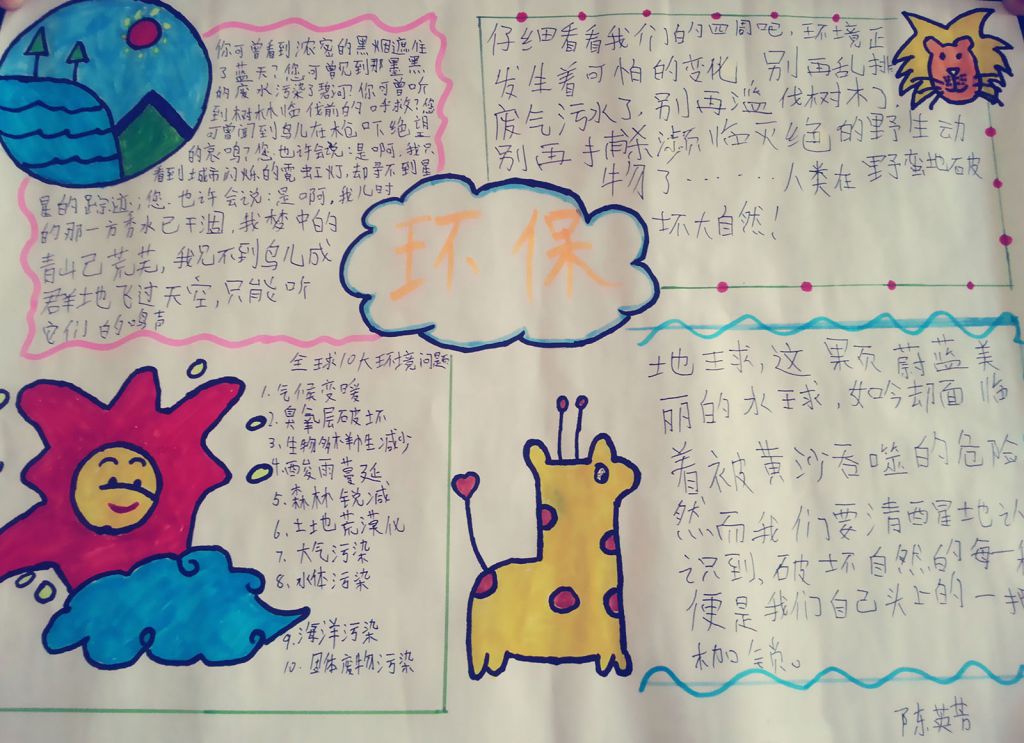 你可曾看到浓密的黑烟遮住
了蓝天?您可曾见到那墨黑
的废水污染了碧河?你可曾听
到树木临伐前的呼救?您
可曾闻到鸟儿在枪吓绝望
的哀鸣?您.也许会说:是啊,我只
看到城市闪烁的霓虹灯,却寻不到星
星的踪迹;您.也许会说:是啊,我儿时
的那一方秀水已干涸,我梦中的
青山已荒芜,我见不到鸟儿成
群地飞过天空,只能听
它们的鸣声
仔细看看我们的四周吧,环境正
发生着可怕的变化,别再乱排
废气污水了,别再滥伐树木了,
别再捕杀濒临灭绝的野生动
物了……人类在野蛮地破
坏大自然!
环保
全球10大环境问题
1.气候变暖
2.臭氧层破坏
3.生物多样性减少
4.酸雨蔓延
5.森林锐减
6.土地荒漠化
7.大气污染
8.水体污染
9.海洋污染
10.固体废物污染
地球,这颗蔚蓝美
丽的水球,如今却面临
着被黄沙吞噬的危险
然而我们要清醒地认
识到、破坏自然的每一
便是我们自己头上的一把
枷锁。
陈英芳